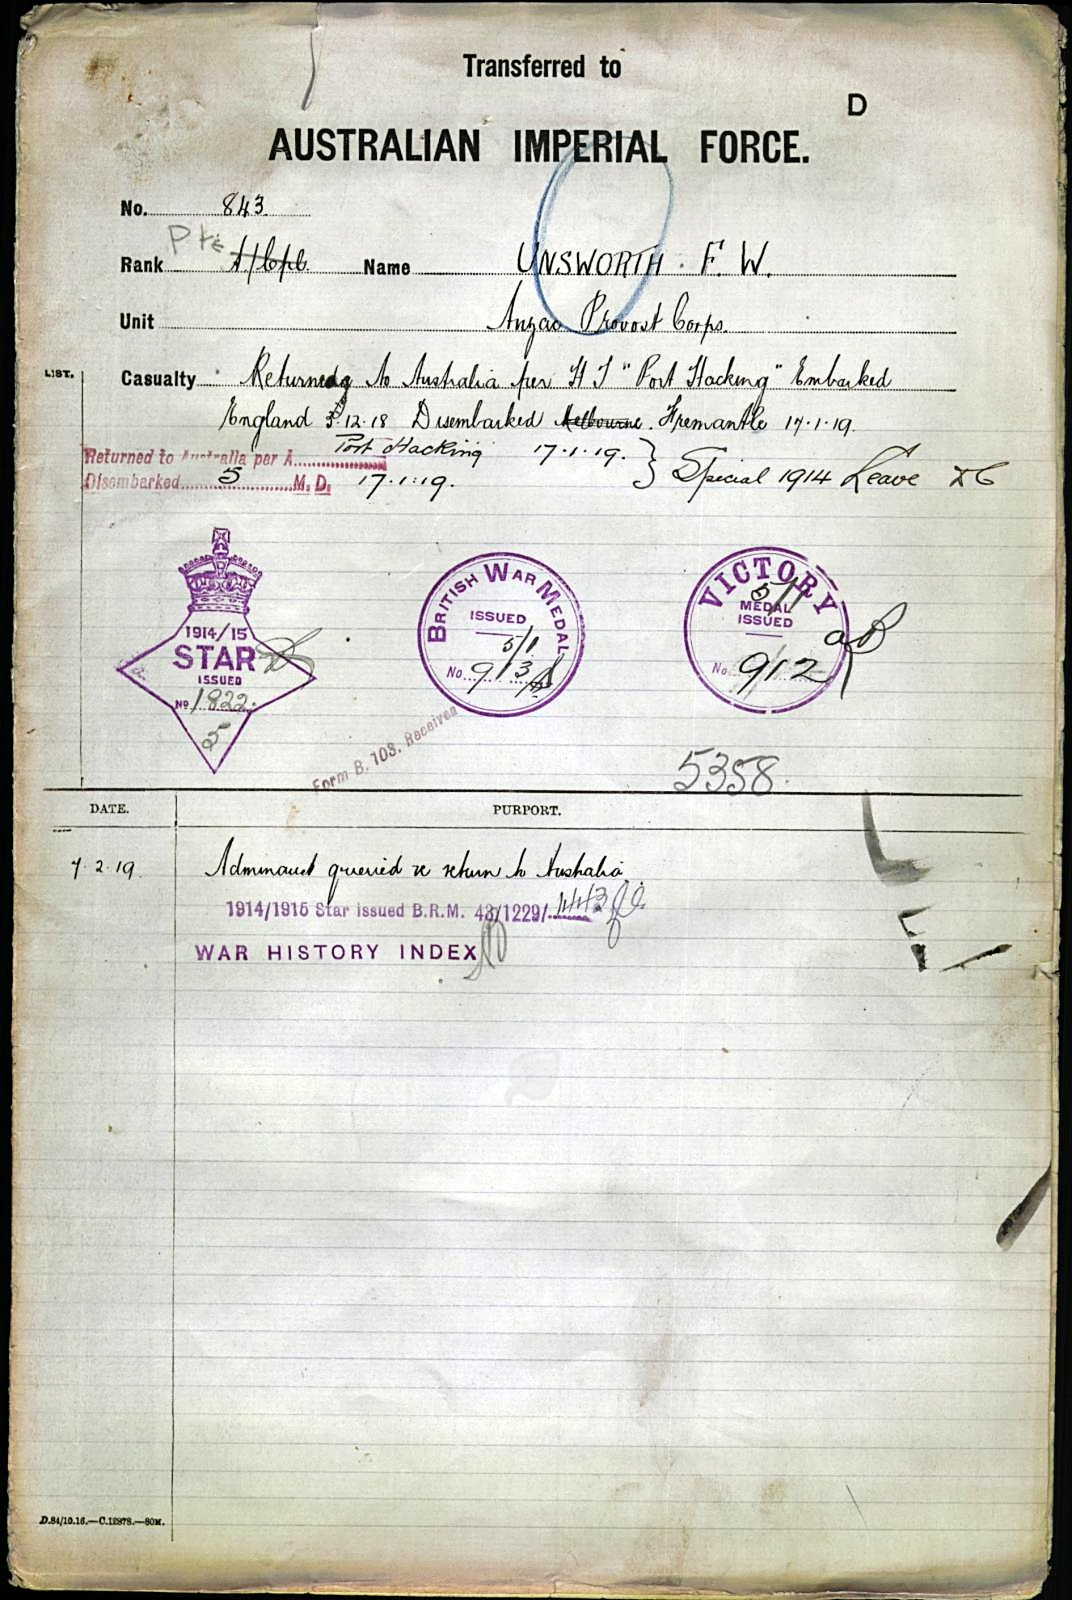 Transferred to
D
AUSTRALIAN IMPERIAL FORCE.
No. 843
Pte
Rank A/Cpl. Name UNSWORTH. F. W.
Unit Anzac Provost Corps.
LIST.
Casualty Returned to Australia per H T "Port Hacking" Embarked
England 12.18 Disembarked Melbourne. Fremantle 17.1.19.
Returned to Australia per A Port Hacking 17.1.19.
Disembarked 5 M. D. 17.1.19. } Special 1914 Leave
1914/15
STAR
ISSUED
No 1822.
5
BRITISH WAR MEDAL
ISSUED
5/1
No. 913
VICTORY
5/1
MEDAL
ISSUED
No. 912
Form B. 103. Received
5358.
DATE. PURPORT.
7.2.19 queried re return to Australia
1914/1915 Star issued B.R.M. 43/1229/443
WAR HISTORY INDEX
D.84/10.16.—C.12878.—80M.